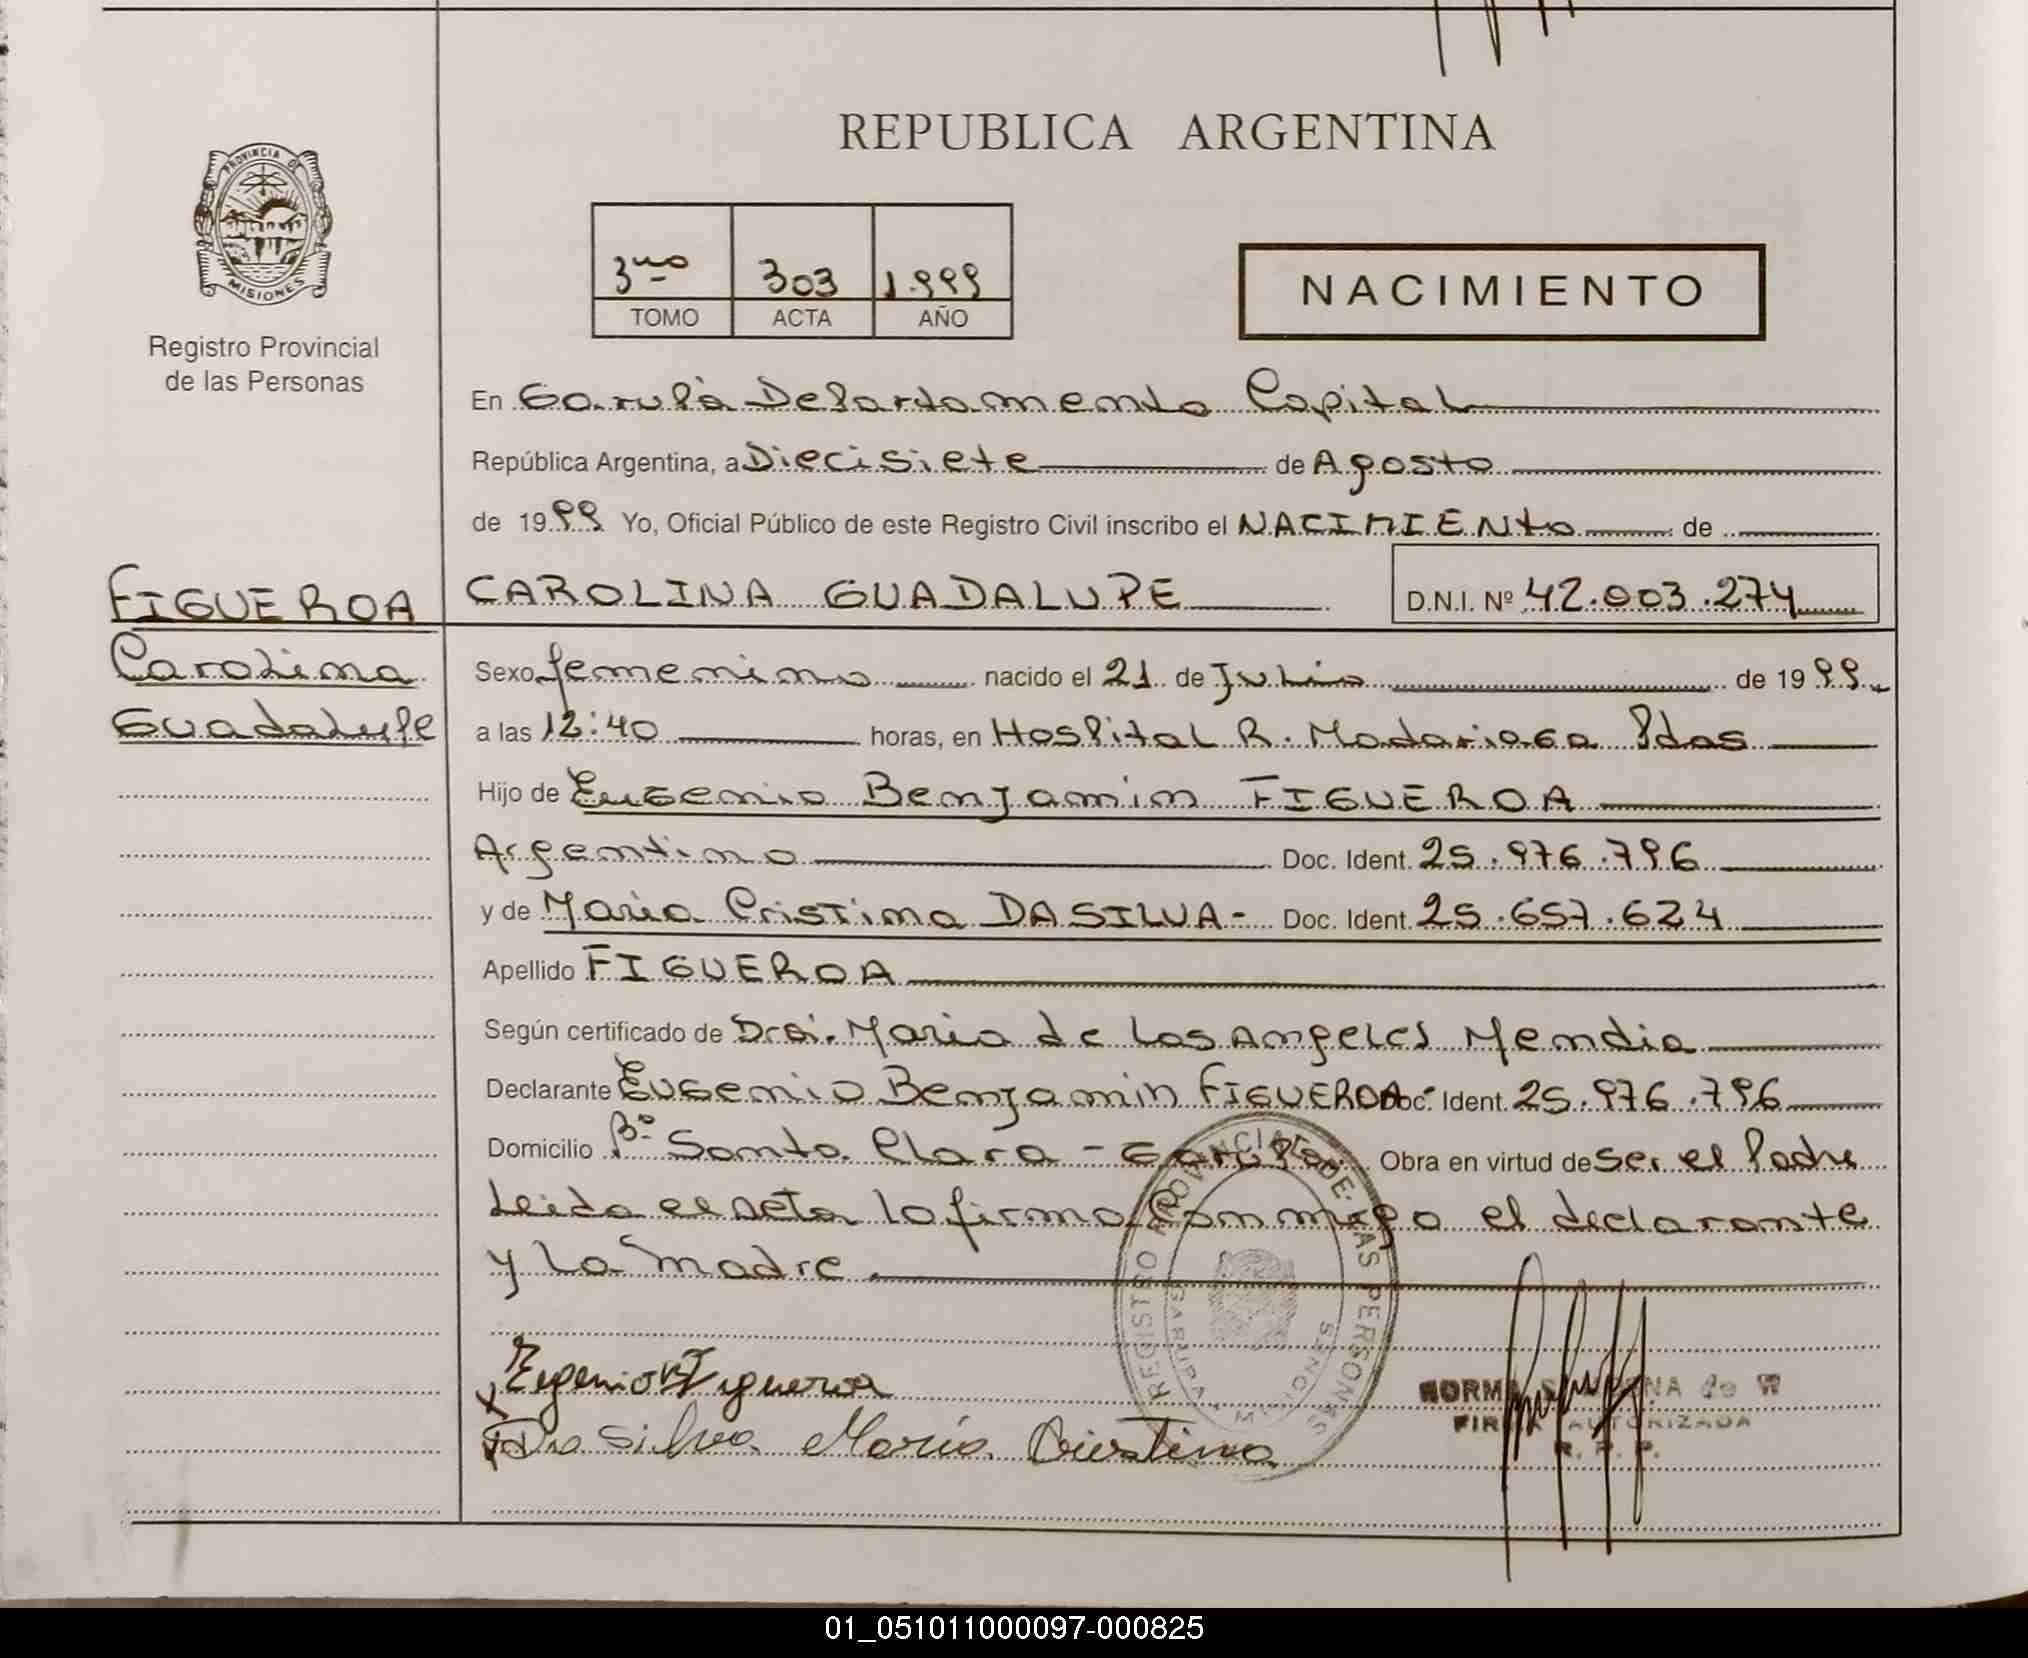 REPUBLICA ARGENTINA
PROVINCIA DE
MISIONES
Registro Provincial
de las Personas
3ro 303 1.999
TOMO ACTA AÑO
NACIMIENTO
En Garupá Departamento Capital
República Argentina, a Diecisiete de Agosto
de 1999 Yo, Oficial Público de este Registro Civil inscribo el NACIMIENto de
FIGUEROA CAROLINA GUADALUPE D.N.I. Nº 42.003.274
Carolina
Guadalupe
Sexo femenino nacido el 21 de Julio de 1999
a las 12:40 horas, en Hospital R. Madariaga Pdas
Hijo de Eugenio Benjamin FIGUEROA
Argentino Doc. Ident. 25.976.796
y de Maria Cristina DASILVA- Doc. Ident. 25.657.624
Apellido FIGUEROA
Según certificado de Dra. Maria de los Angeles Mendia
Declarante Eugenio Benjamin FIGUEROA- Doc. Ident. 25.976.796
Domicilio Bº Santa Clara - Garupa Obra en virtud de ser el Padre
Leida el acta la firma Conmigo el declarante
y la madre
REGISTRO PROVINCIAL DE LAS PERSONAS
GARUPA - MISIONES
Eugenio B Figueroa
Da Silva Maria Cristina
NORMA de W
FIRMA AUTORIZADA
R. P. P.
01_051011000097-000825